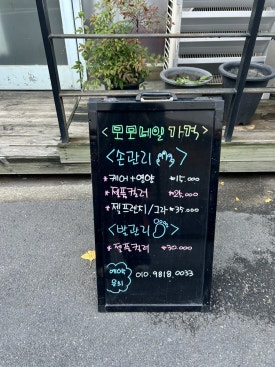 <모모네일 가격>
<손관리>
*케어+영양 ₩15.000
*젤풀컬러 ₩25.000
*젤프렌치/그라 ₩35.000
<발관리>
*젤풀컬러 ₩30.000
예약
문의
010.9818.0033